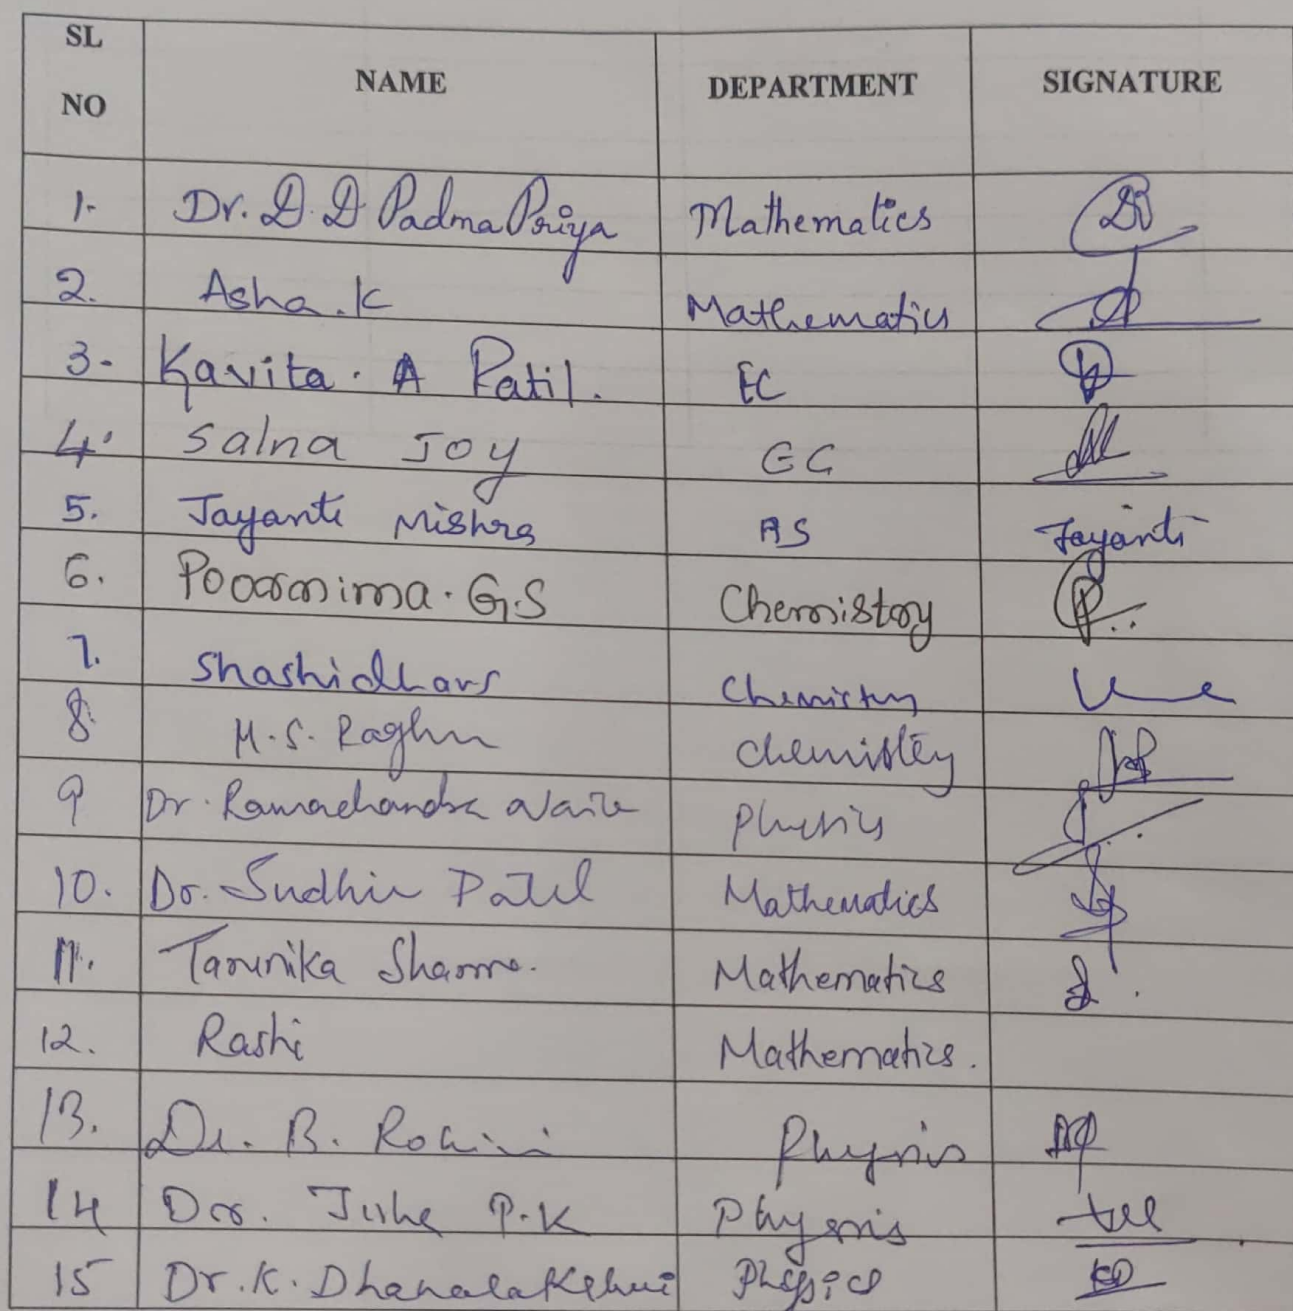 SL NO NAME DEPARTMENT SIGNATURE
1. Dr. D. D Padma Priya Mathematics
2. Asha. K Mathematics
3. Kavita. A Patil. EC
4. Salna Joy EC
5. Jayanti Mishra AS Jayanti
6. Poornima. G.S Chemistry
7. Shashidhar Chemistry
8. M.S. Raghu Chemistry
9 Dr. Ramachandra Naik Physics
10. Dr. Sudhir Patil Mathematics
11. Tarunika Sharma. Mathematics
12. Rashi Mathematics.
13. Dr. B. Rohini Physics
14 Dr. P.K Physics
15 Dr. K. Dhanalakshmi Physics